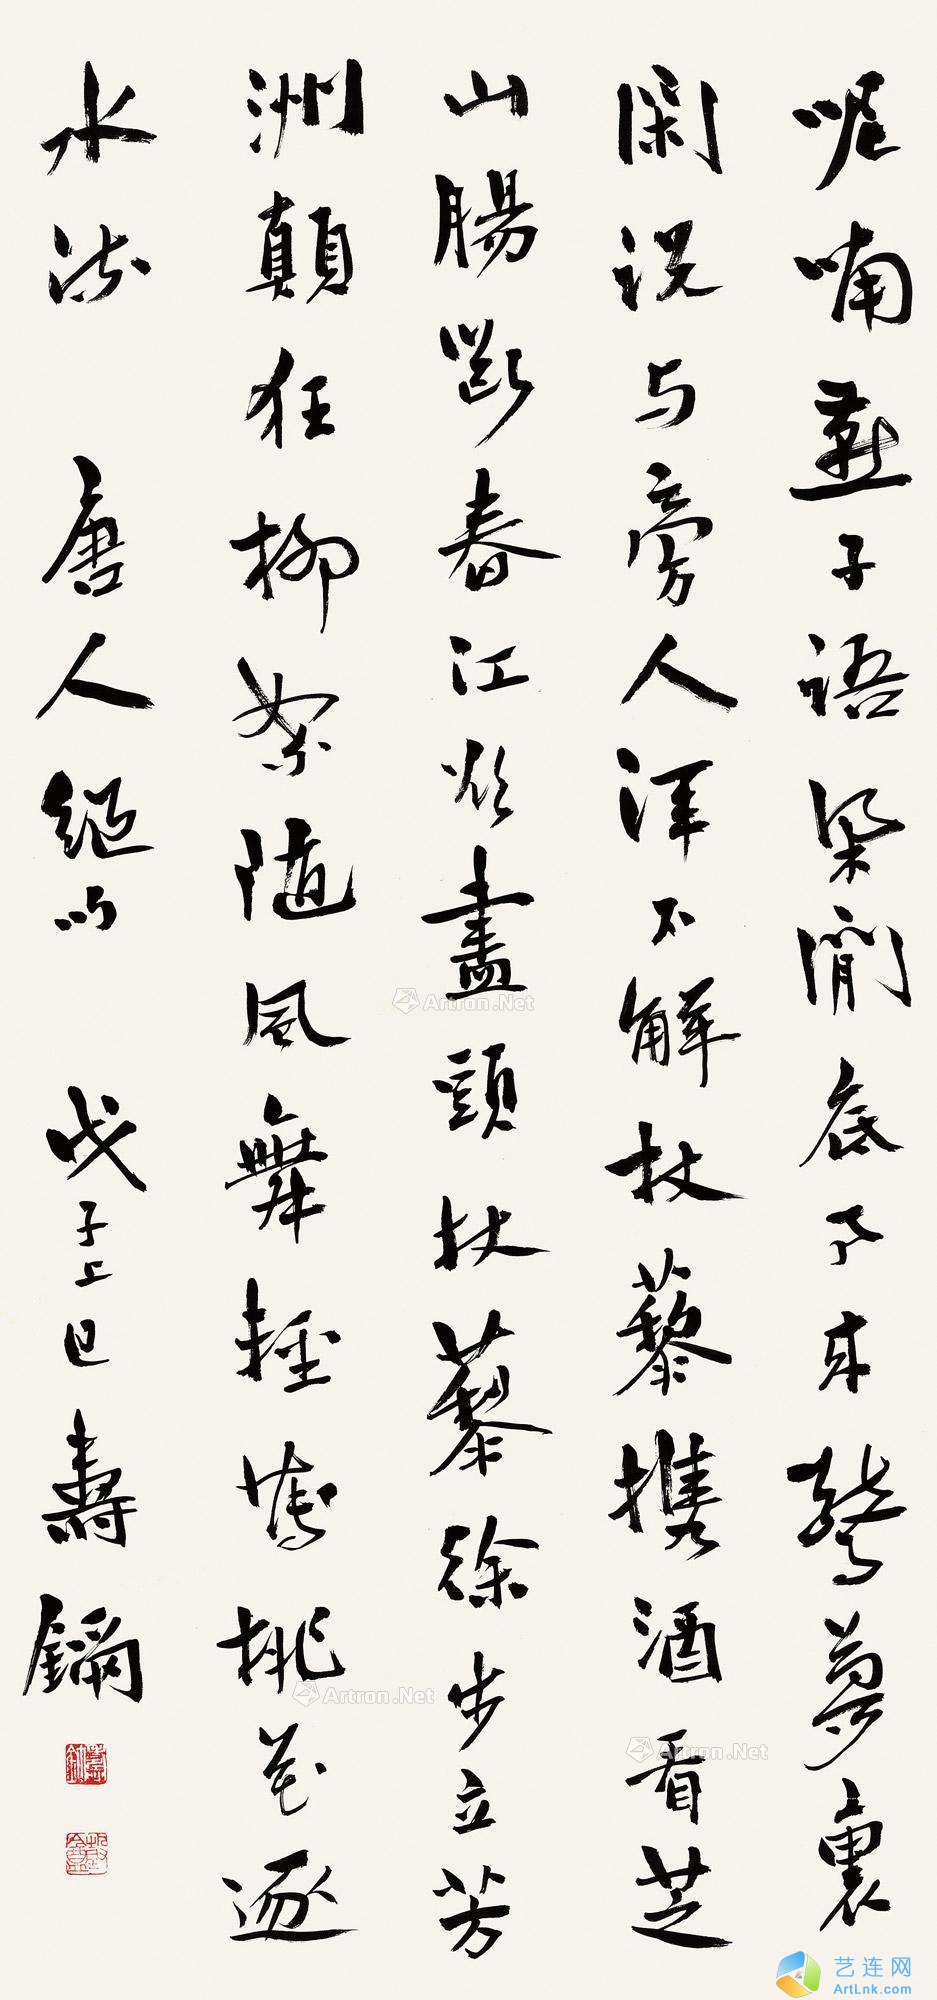 呢喃燕子語梁間底事来驚夢裏
閑說与旁人渾不解杖藜携酒看芝
山腸斷春江欲盡頭杖藜徐步立芳
洲顛狂柳絮随風舞輕薄桃花逐
水流 唐人絕句 戊子上巳 壽鏋
Artron.Net
Artron.Net
Artron.Net
艺连网
ArtLnk.com